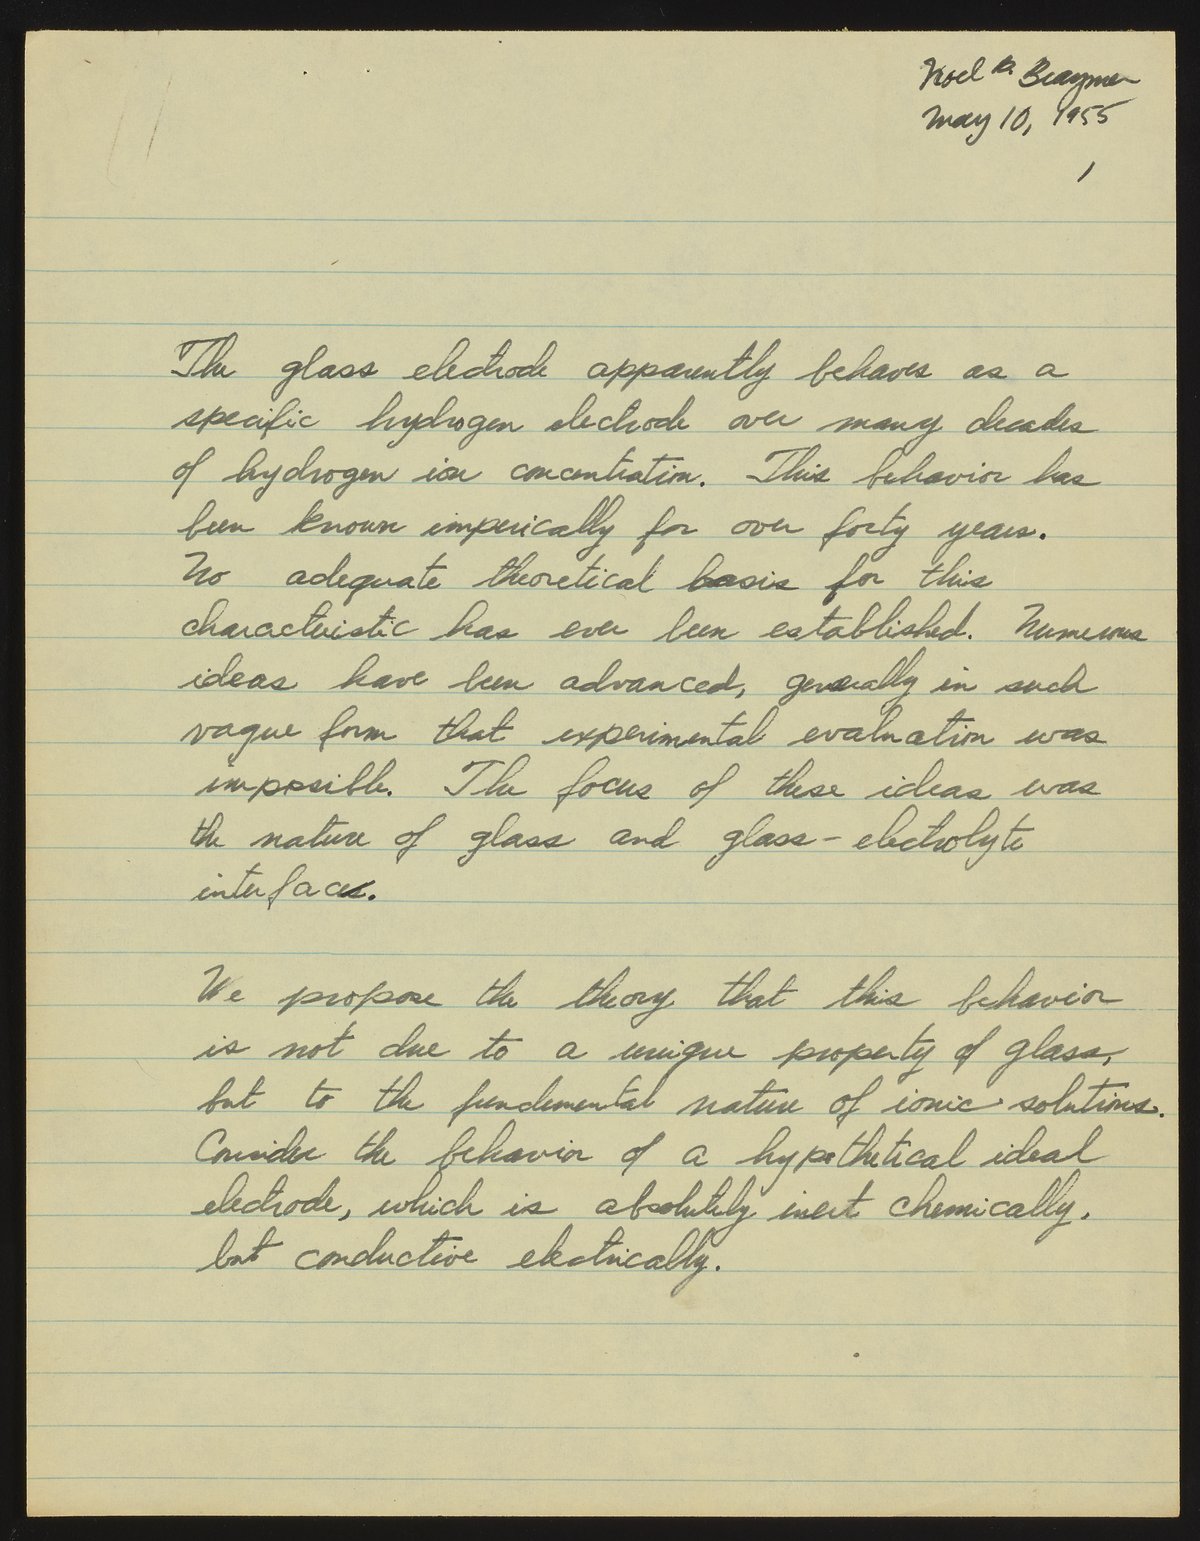 Noel B. Braymer
May 10, 1955
1
The glass electrode apparently behaves as a
specific hydrogen electrode over many decades
of hydrogen ion concentration. This behavior has
been known imperically for over forty years.
No adequate theoretical basis for this
characteristic has ever been established. Numerous
ideas have been advanced, generally in such
vague form that experimental evaluation was
impossible. The focus of these ideas was
the nature of glass and glass-electrolyte
interfaces.
We propose the theory that this behavior
is not due to a unique property of glass,
but to the fundemental nature of ionic solutions.
Consider the behavior of a hypothetical ideal
electrode, which is absolutely inert chemically,
but conductive electrically.